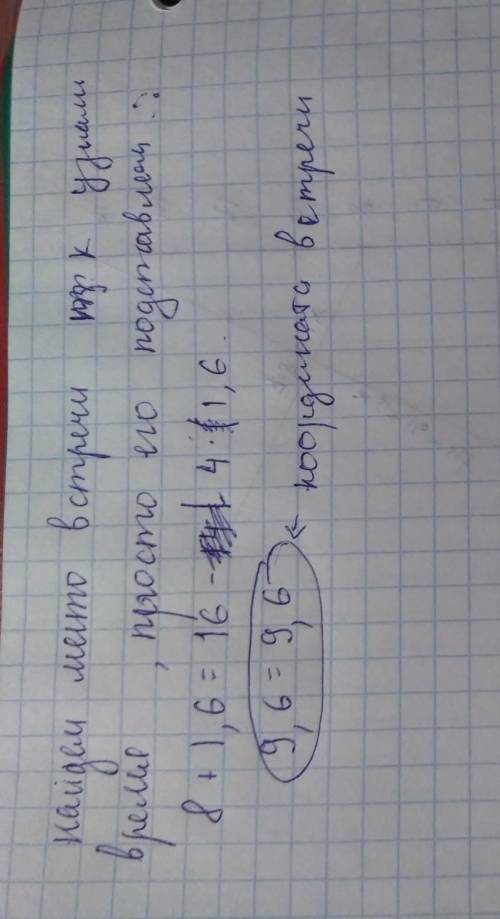 Найдем место встречи тк узнали
время, просто его подставляем :
8 + 1,6 = 16 - 4 · 1,6.
9,6 = 9,6 ← координата встречи